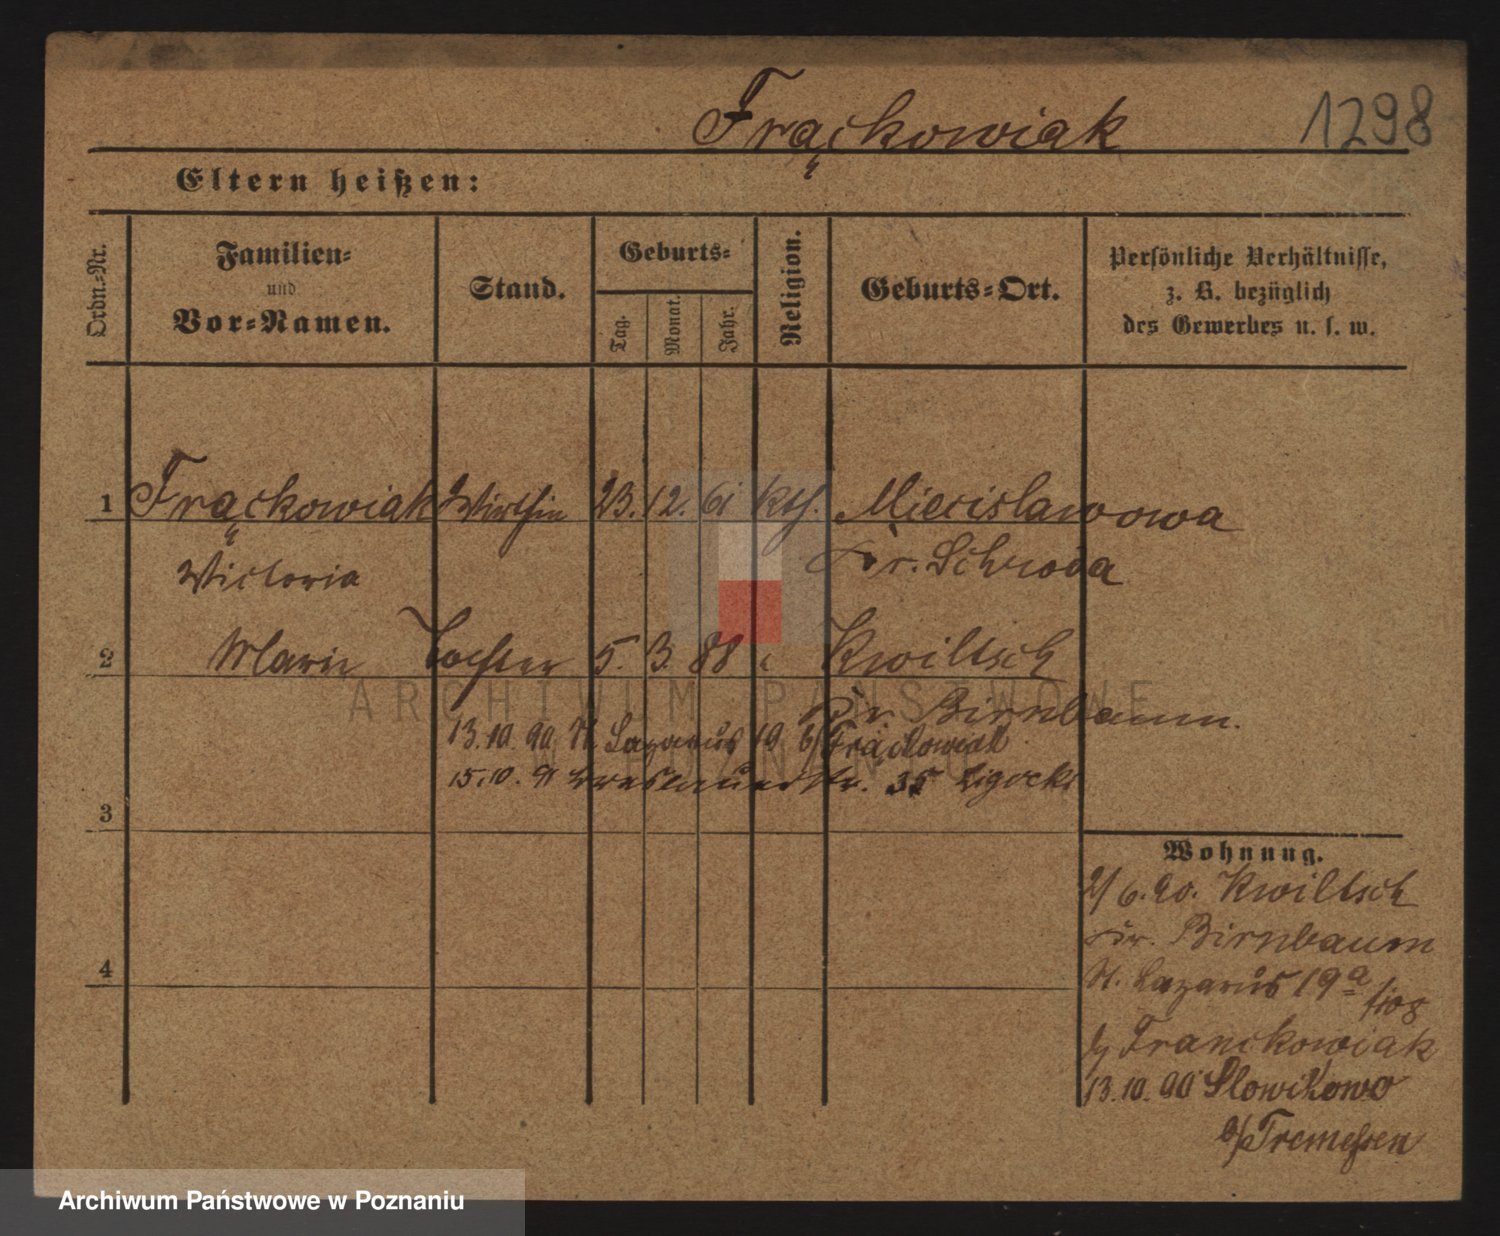 Frąckowiak 1298
Eltern heißen:
Ordn.-Nr.
Familien-
und
Vor-Namen.
Stand.
Geburts-
Tag.
Monat.
Jahr.
Religion.
Geburts-Ort.
Persönliche Verhältnisse,
z. B. bezüglich
des Gewerbes u. s. w.
1 Frąckowiak Wirthin 23. 12. 61 kth. Miecislawowo
Victoria Kr. Schroda
2 Marie Tochter 5. 3. 88 " Kwiltsch
Kr. Birnbaum.
13.10.90 St. Lazarus 19 b/ Frąckowiak
15.10.91 Breslauerstr. 35 Ligocki
3
Wohnung.
2/6.90. Kwiltsch
Kr. Birnbaum
St. Lazarus 19a
b/ Franckowiak
4
13.10.90 Slowikowo
b/ Tremessen
ARCHIWUM PAŃSTWOWE
W POZNANIU
Archiwum Państwowe w Poznaniu